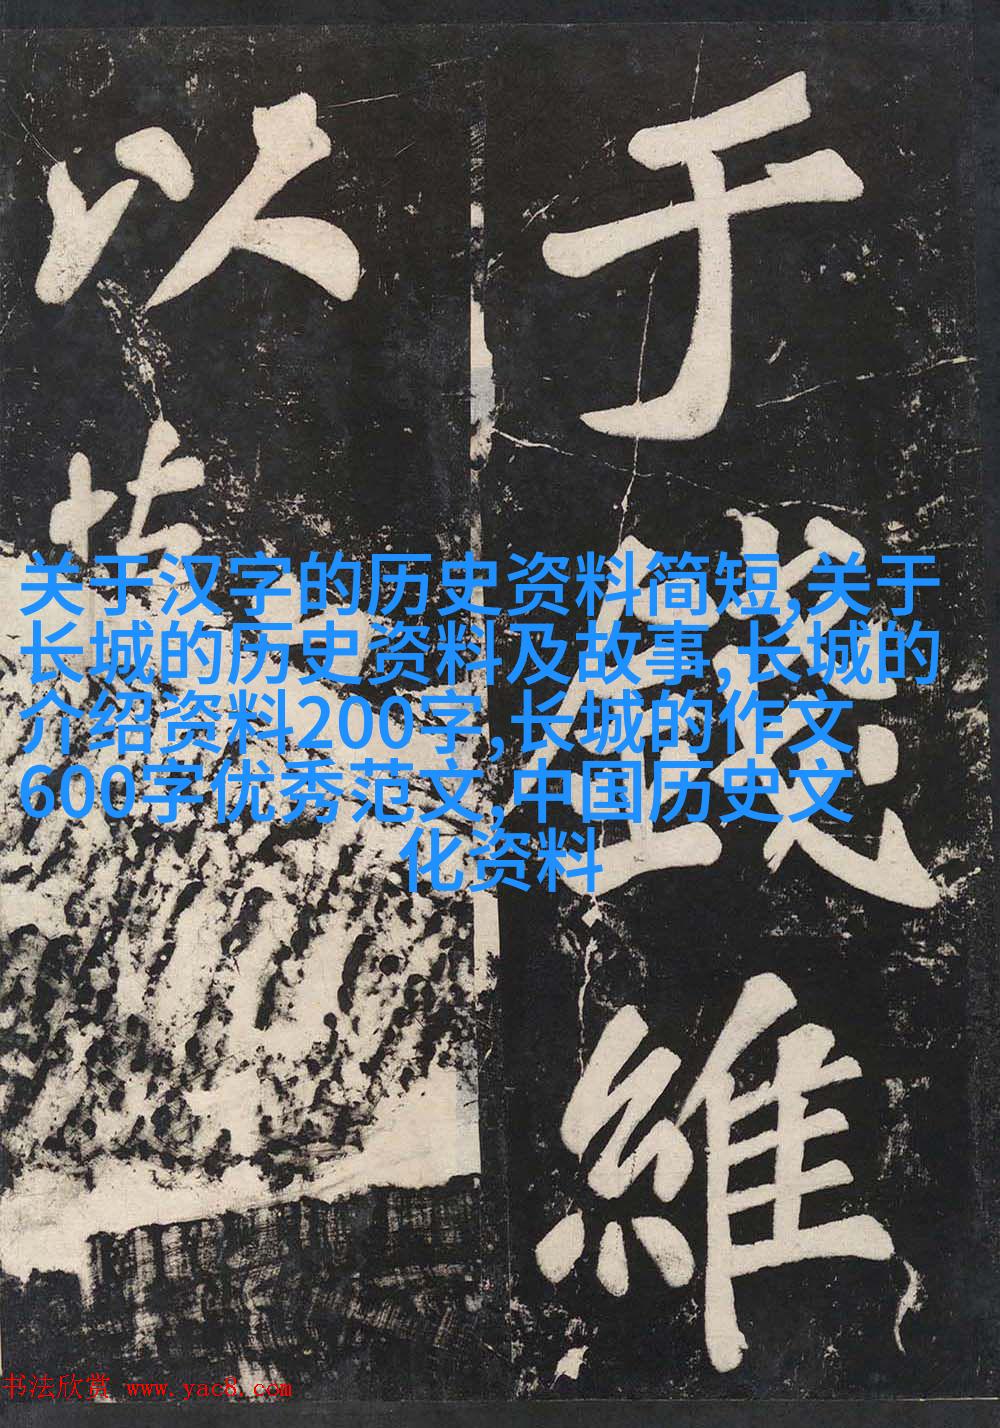 于錢維
以
关于汉字的历史资料简短,关于
长城的历史资料及故事,长城的
介绍资料200字,长城的作文
600字优秀范文,中国历史文
化资料
书法欣赏 www.yac8.com